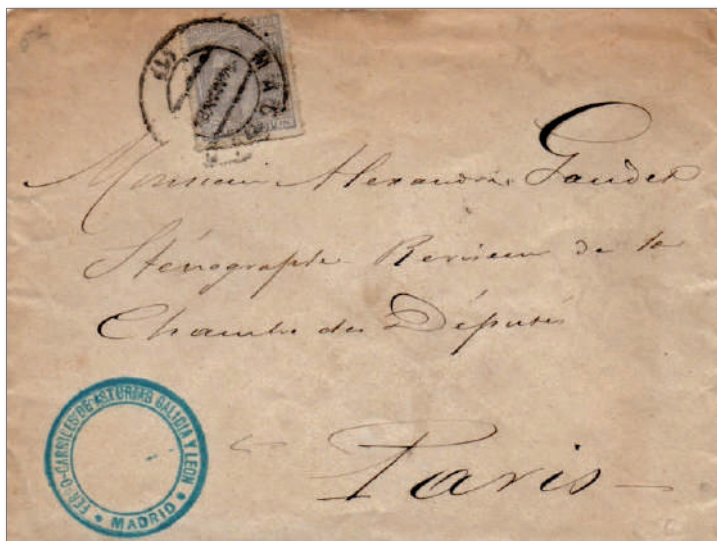 MAD
Monsieur Alexandre Gaudet
Sténographe Reviseur de la
Chambre des Députés
Paris
FERRO-CARRILES DE ASTURIAS GALICIA Y LEON
MADRID